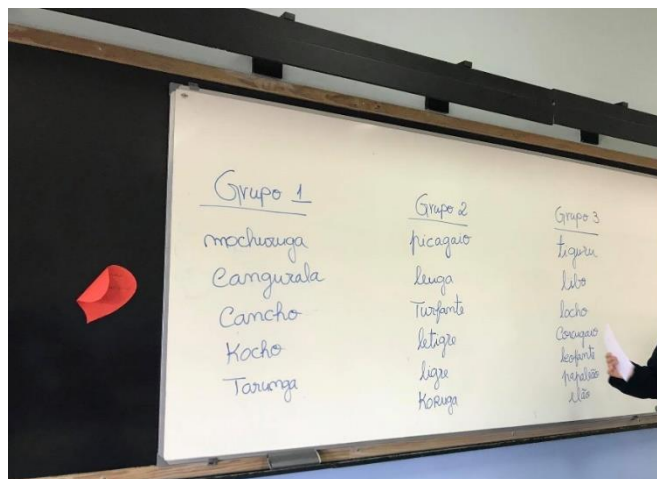 Grupo 1
mochuruga
Cangurala
Cancho
Kocho
Tarunga
Grupo 2
picagaio
leuga
Turfante
letigre
ligre
Koruga
Grupo 3
tiguru
libo
locho
Corugaio
leofante
papaleão
elão